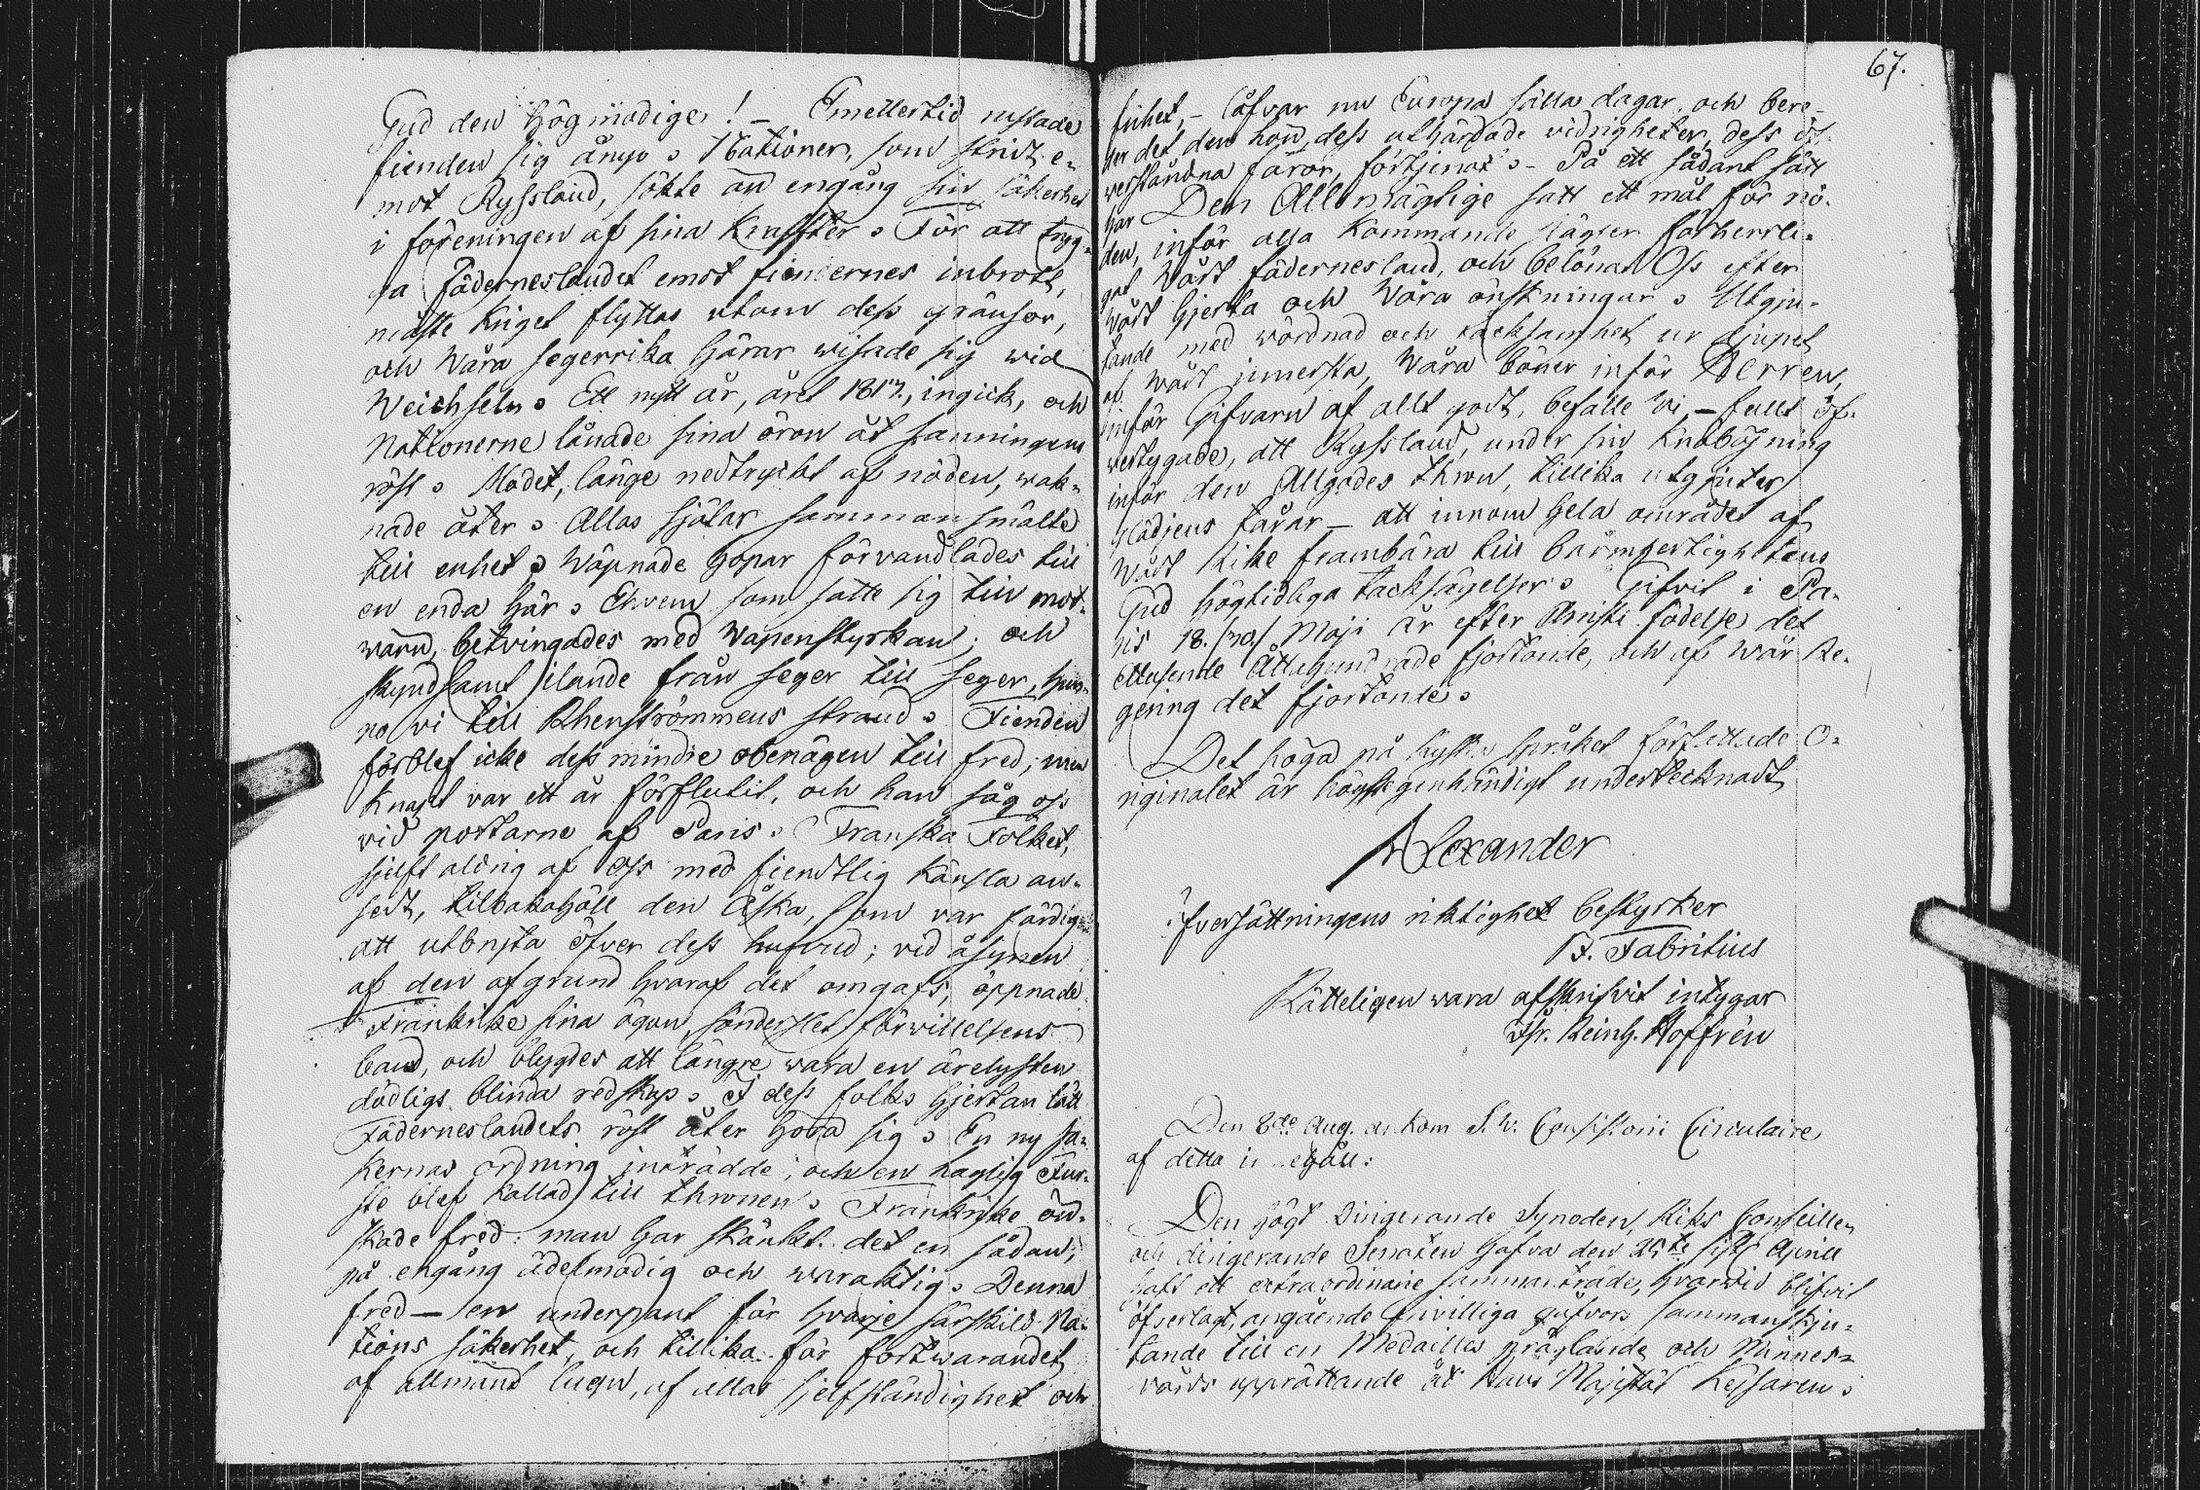 Gud den högmodige! – Emellertid rustade
fienden sig ånyo. Nationer, som stridt e-
mot Ryssland, sökte än engång sin säkerhet
i föreningen af sina Kraffter. För att tryg-
ga Fäderneslandet emot fiendernes inbrott,
måste Kriget flyttas utom dess gränsor,
och Våra segerrika Härar wisade sig wid
Weichseln. Ett nytt år, året 1813, ingick, och
Nationerne lånade sina öron åt sanningens
röst. Modet, länge nedtryckt af nöden, wak-
nade åter. Allas Själar sammansmälte
till enhet. Wäpnade hopar förvandlades till
en enda här. Ehvem som satte sig till mot-
wärn, betvingades med Vapenstyrkan; och
skyndsamt ilande från seger till seger, hun-
no vi till Rhenströmmens strand. Fienden
förblef icke dess mindre obenägen till fred; men
Knapt var ett år förflutit, och han såg oss
vid portarne af Paris. Franska Folket,
sjelft aldrig af Oss med fiendtlig känsla an-
sedt, tilbakahöll den Åska, som var färdig
att utbrista öfver dess hufvud; vid åsynen
af den afgrund hvaraf det omgafs, öppnade
Frankrike sina ögon, sönderslet förvillelsens
band, och blygdes att längre vara en ärelysten
dödligs blinda redskap. I dess folks hjertan lätt
Fäderneslandets röst åter höra sig. En ny sa-
kernas ordning inträdde; och en laglig Fur-
ste blef kallad till thronen. Frankrike ön-
skade fred: man har skänkt det en sådan,
på engång ädelmodig och waraktig. Denna
fred – en underpant för hvarje särskild Na-
tions säkerhet, och tillika för fortwarandet
af allmänt lugn, af allas sjelfständighet och
67.
frihet, – låfvar nu Europa sälla dagar, och bere-
der det den lön, dess uthärdade vidrigheter, dess öf-
verståndna faror, förtjenat. – På ett sådant sätt
har Den Allsmägtige satt ett mål för nö-
den, inför alla Kommande slägter förherrli-
gat Vårt fädernesland, och belönat Oss efter
Vårt hjerta och Våra önskningar. Utgju-
tande med wördnad och tacksamhet ur djupet
af Vårt innersta, Våra böner inför Herren,
inför Gifvarn af allt godt, befalle Vi, – fullt öf-
vertygade, att Ryssland, under sin Knäböjning
inför den Allgodes thron, tillika utgjuter
Glädjens tårar – att innom hela området af
Vårt Rike frambära till barmhertighetens
Gud högtidliga tacksägelser. Gifvit i Pa-
ris 18. /30/ Maji år efter Christi födelse det
Ettusende Åttahundrade fjortonde, och af Wår Re-
gering det fjortonde.
Det höga på Ryska språket författade O-
riginalet är högstegenhändigt undertecknadt
Alexander
Öfversättningens riktighet bestyrker
F. Fabritius
Rätteligen wara afskrifvit intygar
Reinh. Hoffrén
Den 8de Aug. ankom S. V. Consistorii Circulaire
af detta innehåll:
Den högt dirigerande Synoden, Riks Conseillen
och dirigerande Senaten hafva den 25te sistl. Aprill
haft ett extraordinarie sammanträde, hvarwid blifvit
öfverlagt, angående frivilliga gåfvors sammanskju-
tande till en Medailles präglande och Minnes-
vårds upprättande åt Hans Majestät Kejsaren.